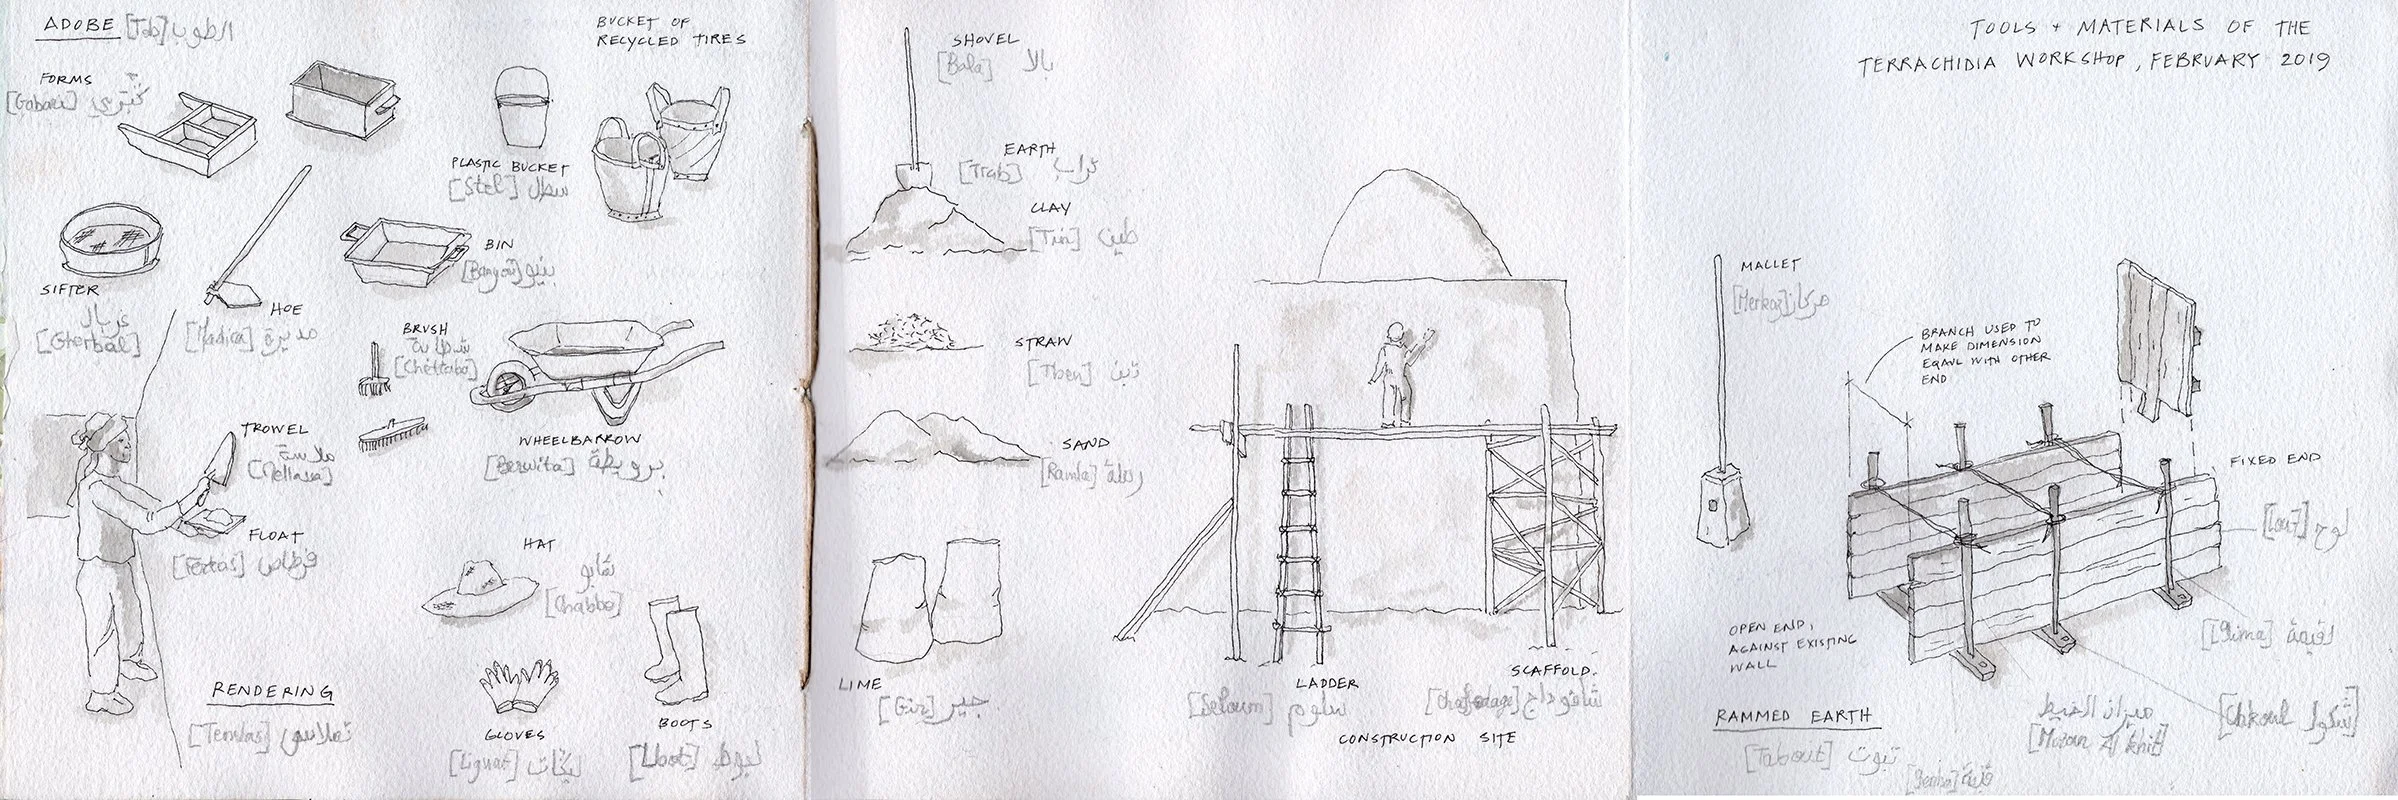 ADOBE [Tob] الطوب
FORMS
BUCKET OF
RECYCLED TIRES
PLASTIC BUCKET
[Stel] سطل
SIFTER
غربال
[Gherbal]
HOE
[Madica] مديرة
BIN
[Banyou] بنيو
BRUSH
شطابة
[Chettaba]
WHEELBARROW
[Berwita] برويطة
TROWEL
ملاسة
[Mellasa]
FLOAT
[Fertas] فرطاص
HAT
شابو
[Chabbo]
RENDERING
[Temlas] تملاس
GLOVES
[Liguat] ليگات
BOOTS
[Lboot] لبوط
SHOVEL
[Bala] بالا
EARTH
[Trab] تراب
CLAY
[Tin] طين
STRAW
[Tben] تبن
SAND
[Ramla] رملة
LIME
[Gir] جير
LADDER
[Seloum] سلوم
SCAFFOLD.
CONSTRUCTION SITE
TOOLS + MATERIALS OF THE
TERRACHIDIA WORKSHOP, FEBRUARY 2019
MALLET
[Merkaz] مركاز
BRANCH USED TO
MAKE DIMENSION
EQAUL WITH OTHER
END
FIXED END
لوح
OPEN END,
AGAINST EXISTING
WALL
RAMMED EARTH
[Tabout] تبوت
ميزان الخيط
[Mizan Al khit]